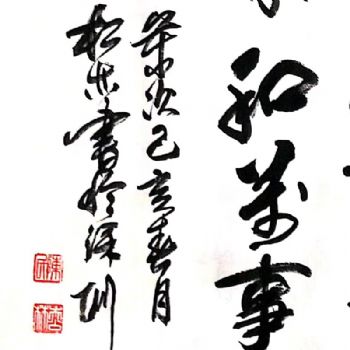 和萬事
歲次己亥春月
書於深圳